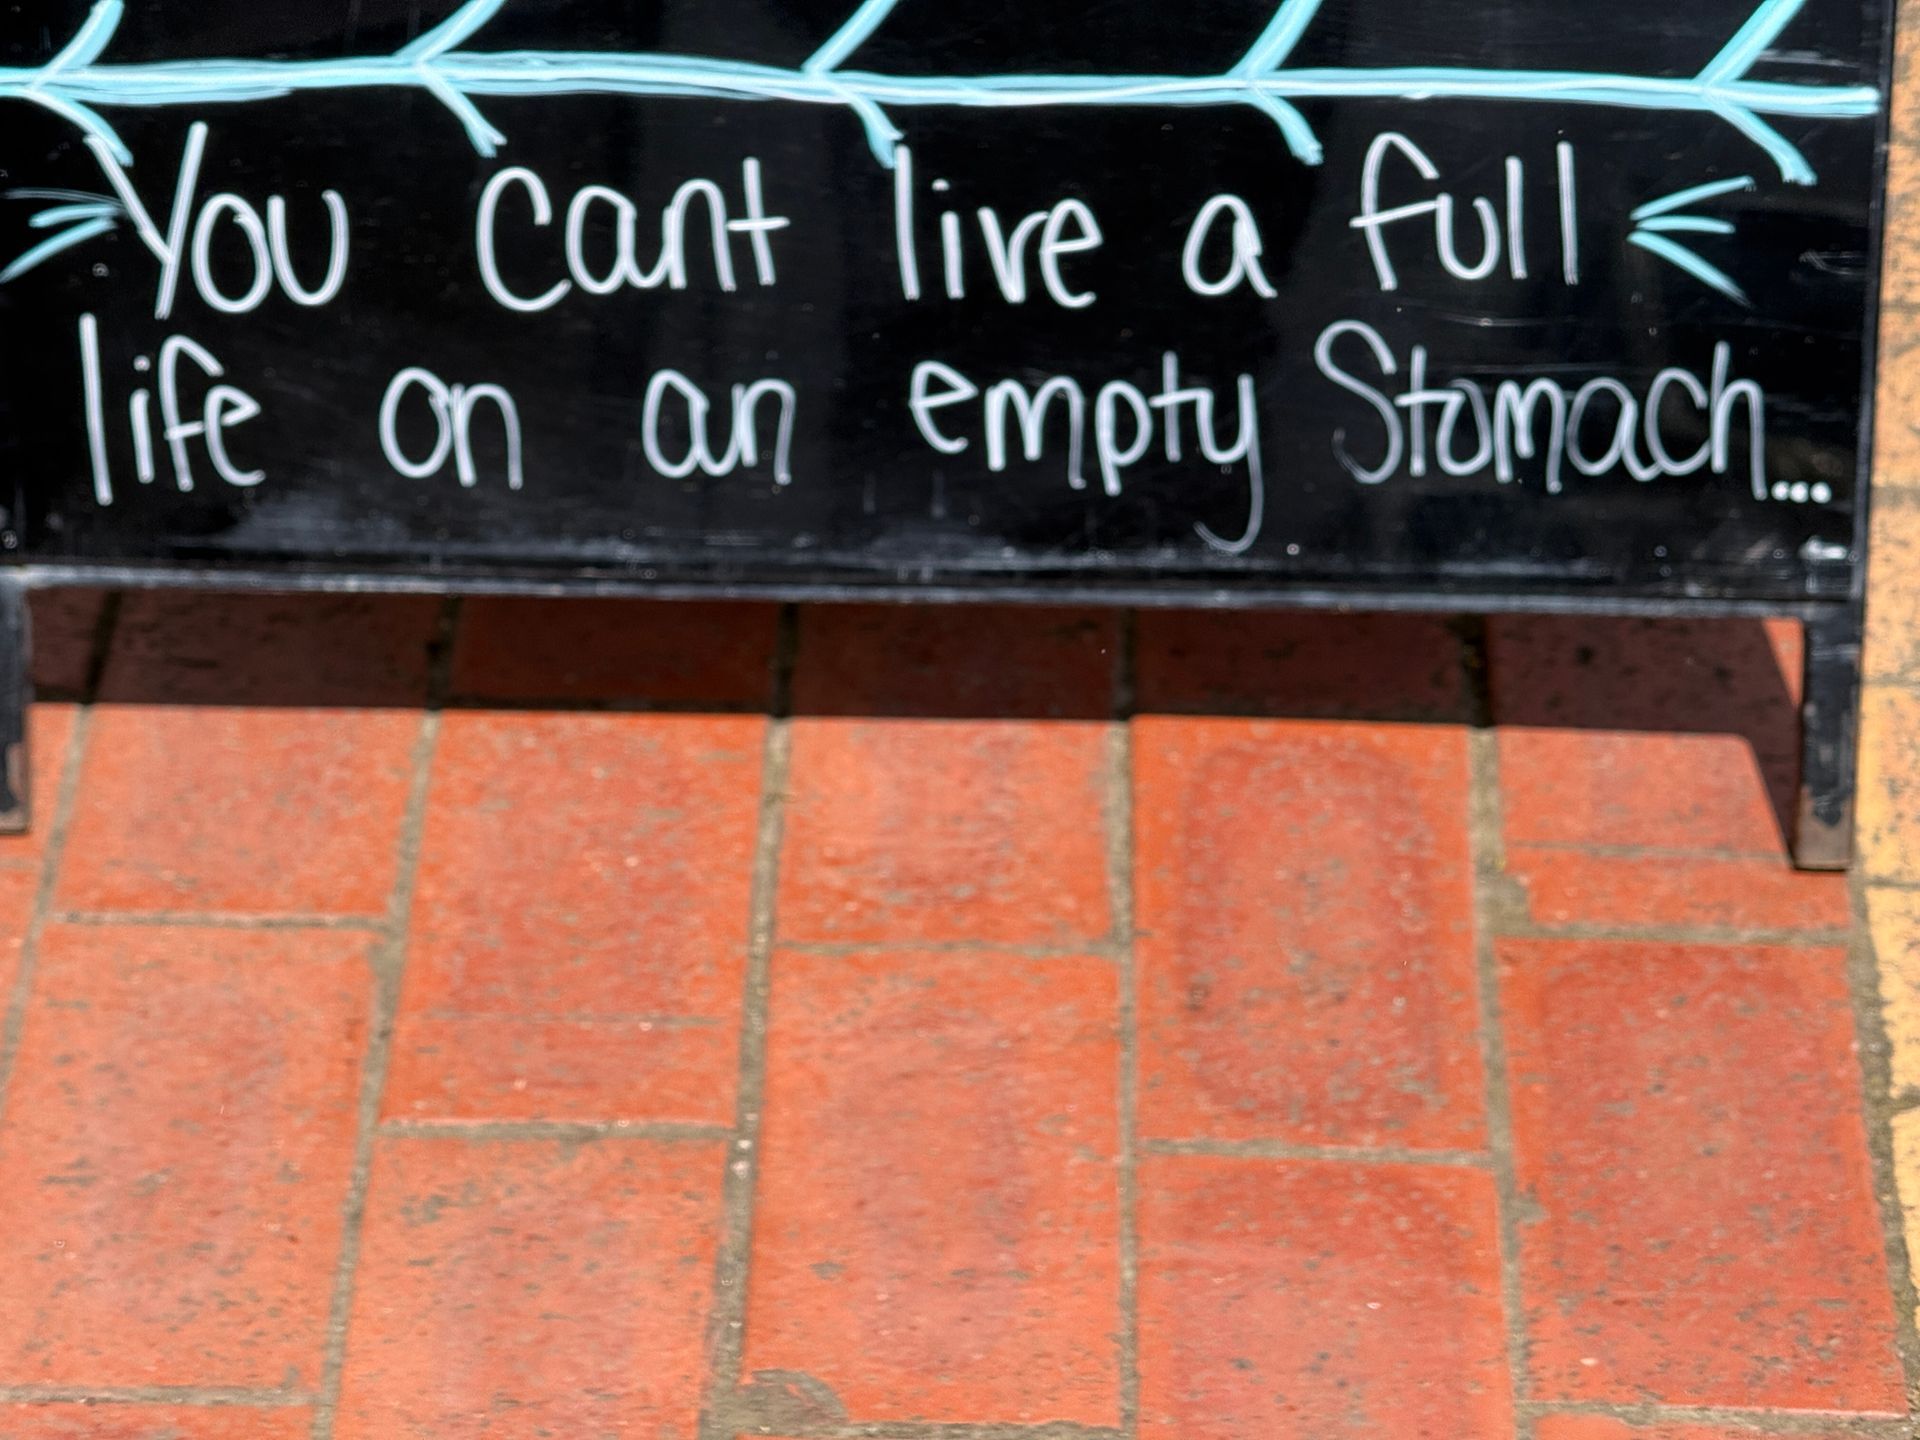 You cant live a full
life on an empty Stomach...